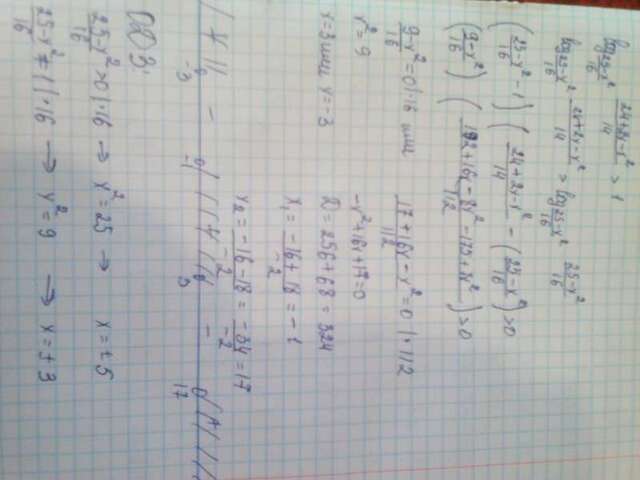 log_{(25-x²)/16} (24+2x-x²)/14 > 1
log_{(25-x²)/16} (24+2x-x²)/14 > log_{(25-x²)/16} (25-x²)/16
((25-x²)/16 - 1) ((24+2x-x²)/14 - (25-x²)/16) > 0
((9-x²)/16) ((192+16x-8x²-175+7x²)/112) > 0
(9-x²)/16 = 0 | ·16 или (17+16x-x²)/112 = 0 | ·112
x² = 9 -x²+16x+17=0
x=3 или x=-3 D = 256+68 = 324
x₁ = (-16+18)/(-2) = -1
x₂ = (-16-18)/(-2) = (-34)/(-2) = 17
+ -3 - -1 + 3 - 17 +
ОДЗ:
(25-x²)/16 > 0 | ·16 → x² = 25 → x = ±5
(25-x²)/16 ≠ 1 | ·16 → x² = 9 → x = ±3